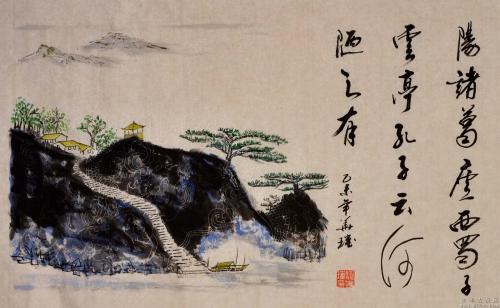 陽諸葛廬西蜀子
雲亭孔子云何
陋之有
乙未年